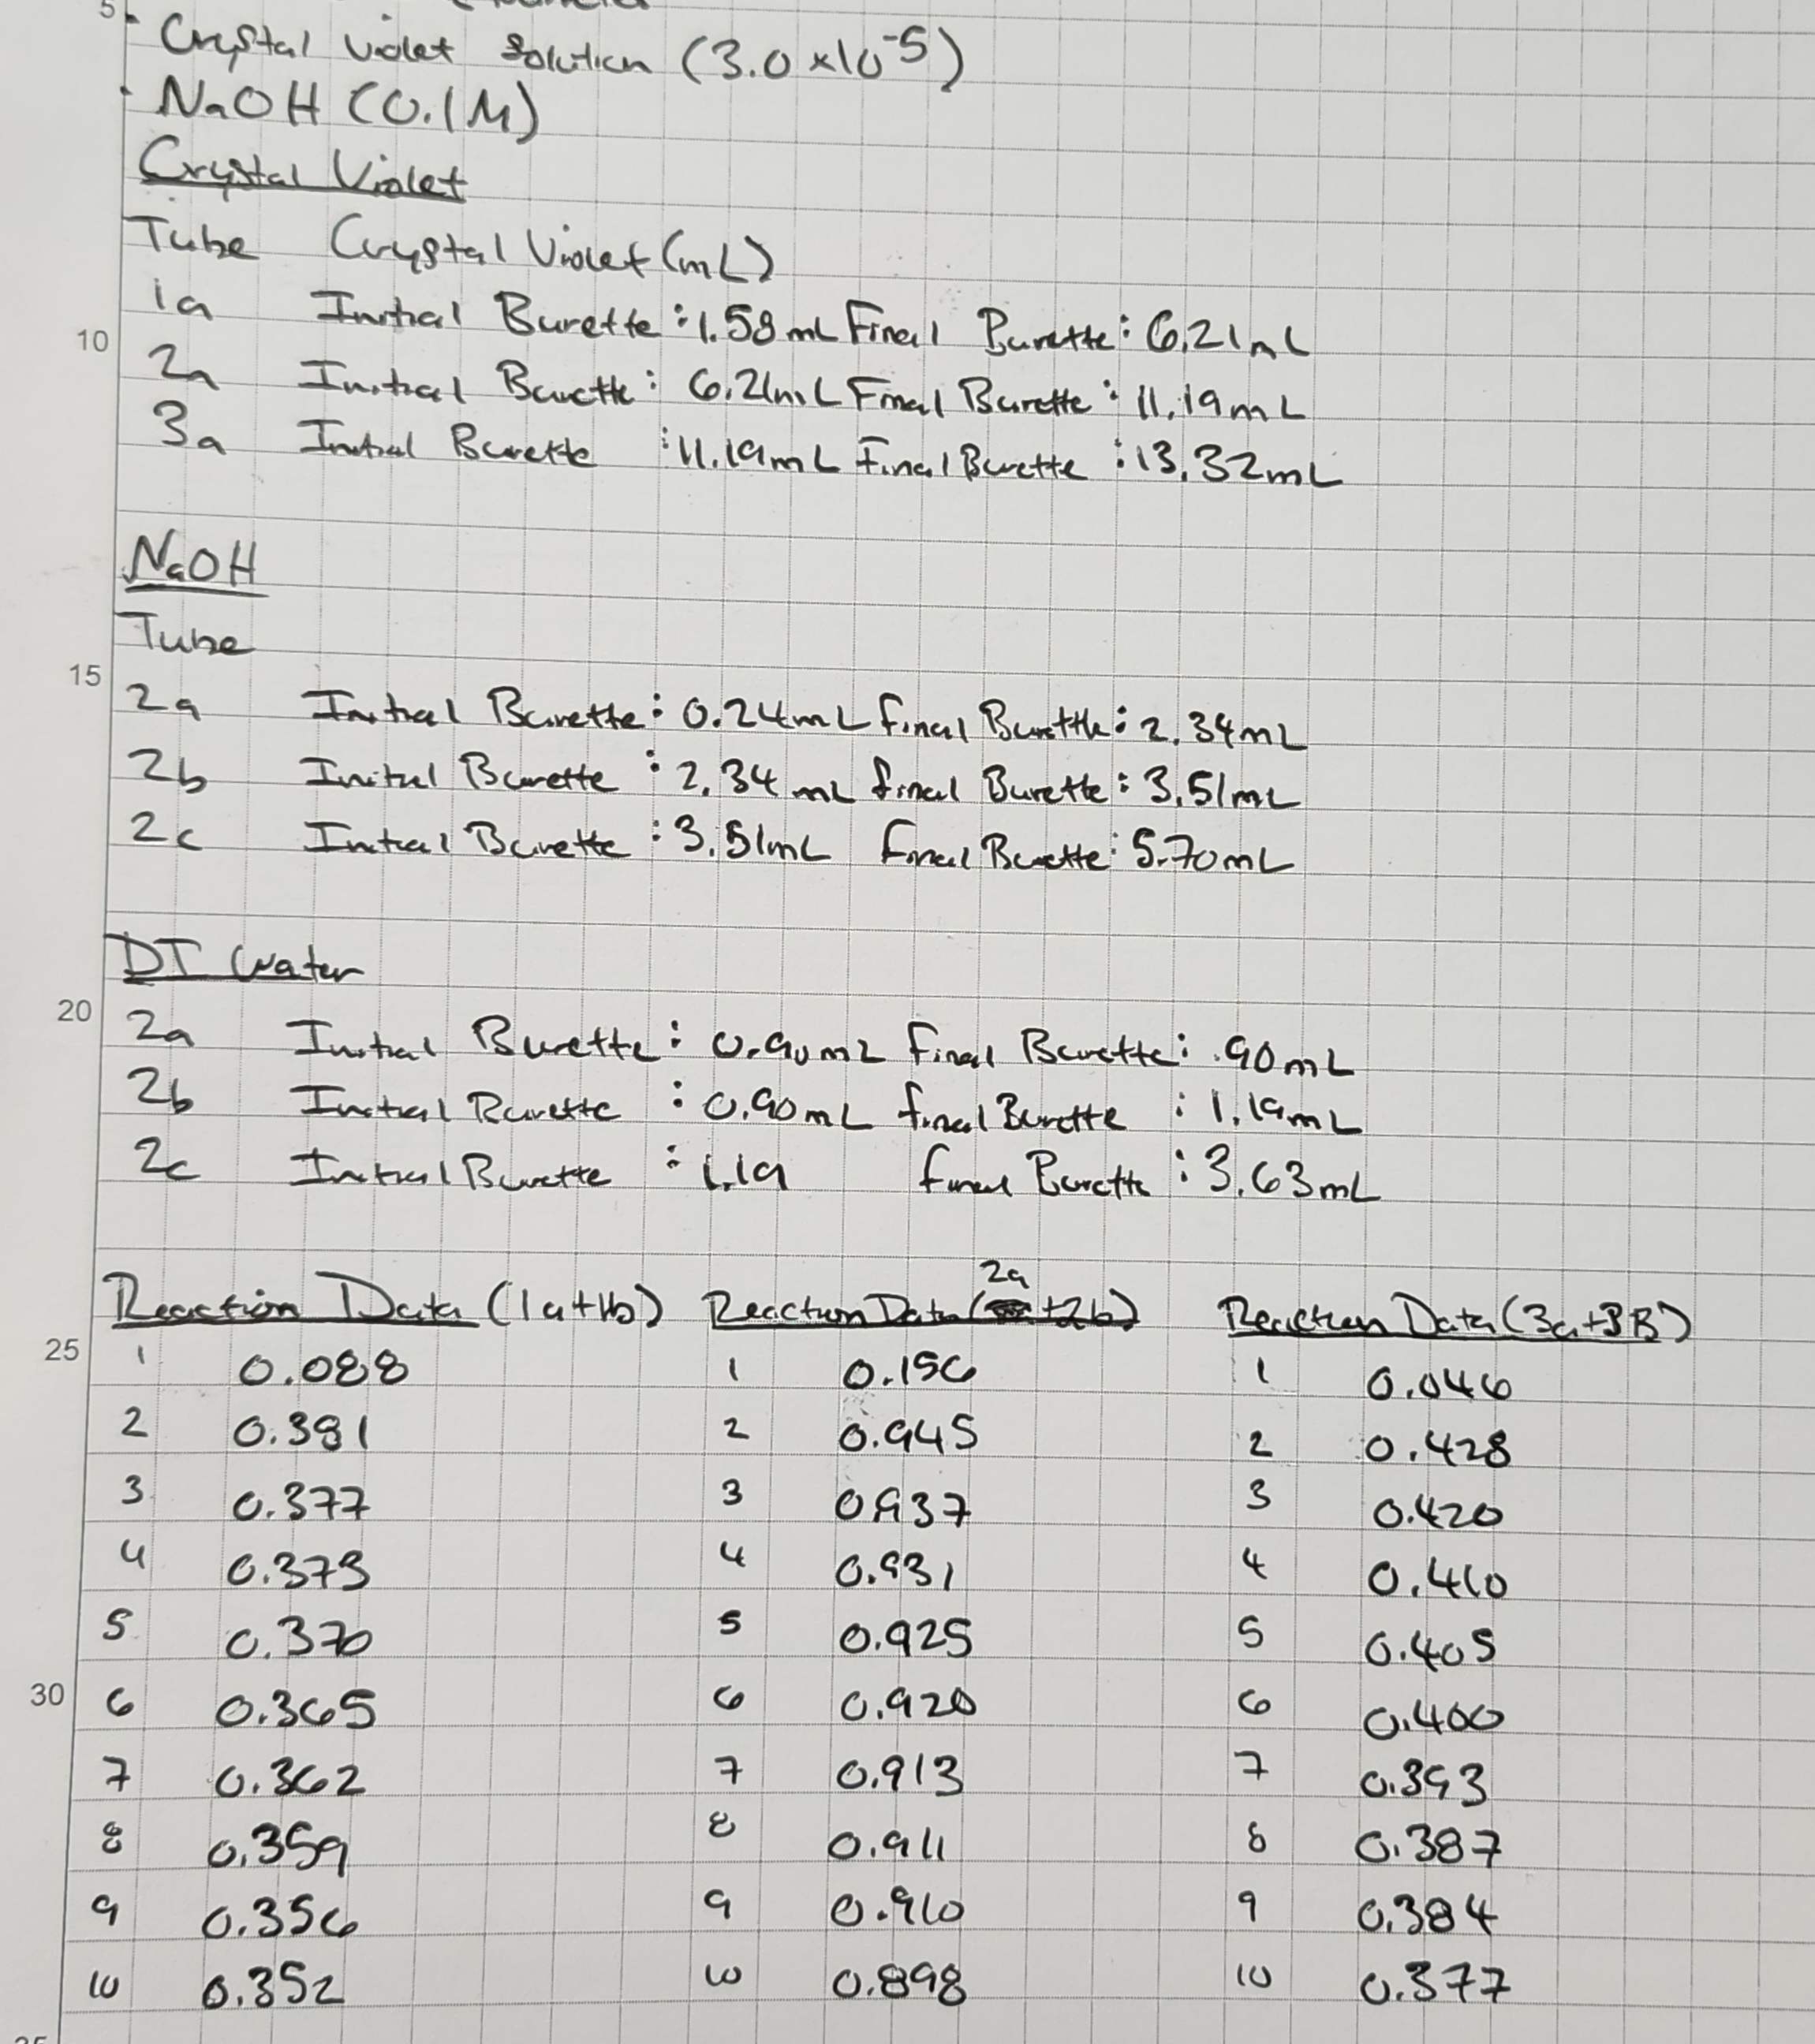 5
· Crystal Violet Solution (3.0 x10-5)
· NaOH (0.1M)
Crystal Violet
Tube Crystal Violet (mL)
1a Initial Burette : 1.58 mL Final Burette : 6.21 mL
10
2a Initial Burette : 6.21mL Final Burette : 11.19mL
3a Initial Burette : 11.19mL Final Burette : 13.32mL
NaOH
Tube
15
2a Initial Burette : 0.24mL final Burette : 2.34mL
2b Initial Burette : 2.34 mL final Burette : 3.51mL
2c Initial Burette : 3.51mL Final Burette : 5.70mL
DI Water
20
2a Initial Burette : 0.90mL final Burette : .90mL
2b Initial Burette : 0.90mL final Burette : 1.19mL
2c Initial Burette : 1.19 final Burette : 3.63mL
Reaction Data (1a+1b) Reaction Data (2a+2b) Reaction Data (3a+3B)
25
1 0.088 1 0.156 1 0.046
2 0.381 2 0.945 2 0.428
3 0.377 3 0.937 3 0.420
4 0.373 4 0.931 4 0.410
5 0.370 5 0.925 5 0.405
30
6 0.365 6 0.920 6 0.400
7 0.362 7 0.913 7 0.393
8 0.359 8 0.911 8 0.387
9 0.356 9 0.910 9 0.384
10 0.352 10 0.898 10 0.377